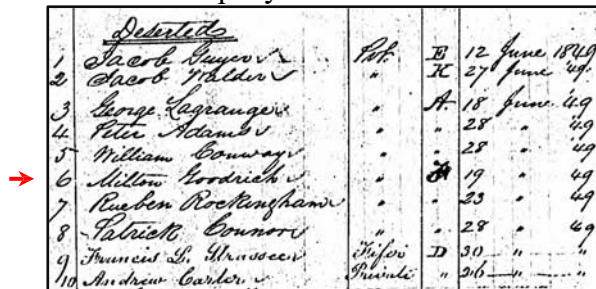 Deserted
1 Jacob Guyer Pvt. E 12 June 1849
2 Jacob Walder " K 27 June '49
3 George Lagrange " A 18 June '49
4 Peter Adams " " 28 " '49
5 William Conway " " 28 " '49
6 Milton Goodrich " 19 " 49
7 Rueben Rockingham " " 23 " 49
8 Patrick Connor " " 28 " 49
9 Francis L. Fifer D 30 " "
10 Andrew Carter Private " 26 " "